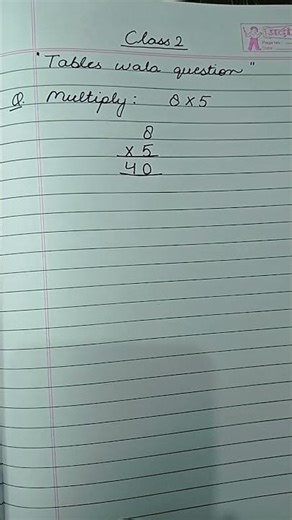 Class 2
"Tables wala question"
Q. Multiply: 8 x 5
8
x 5
40